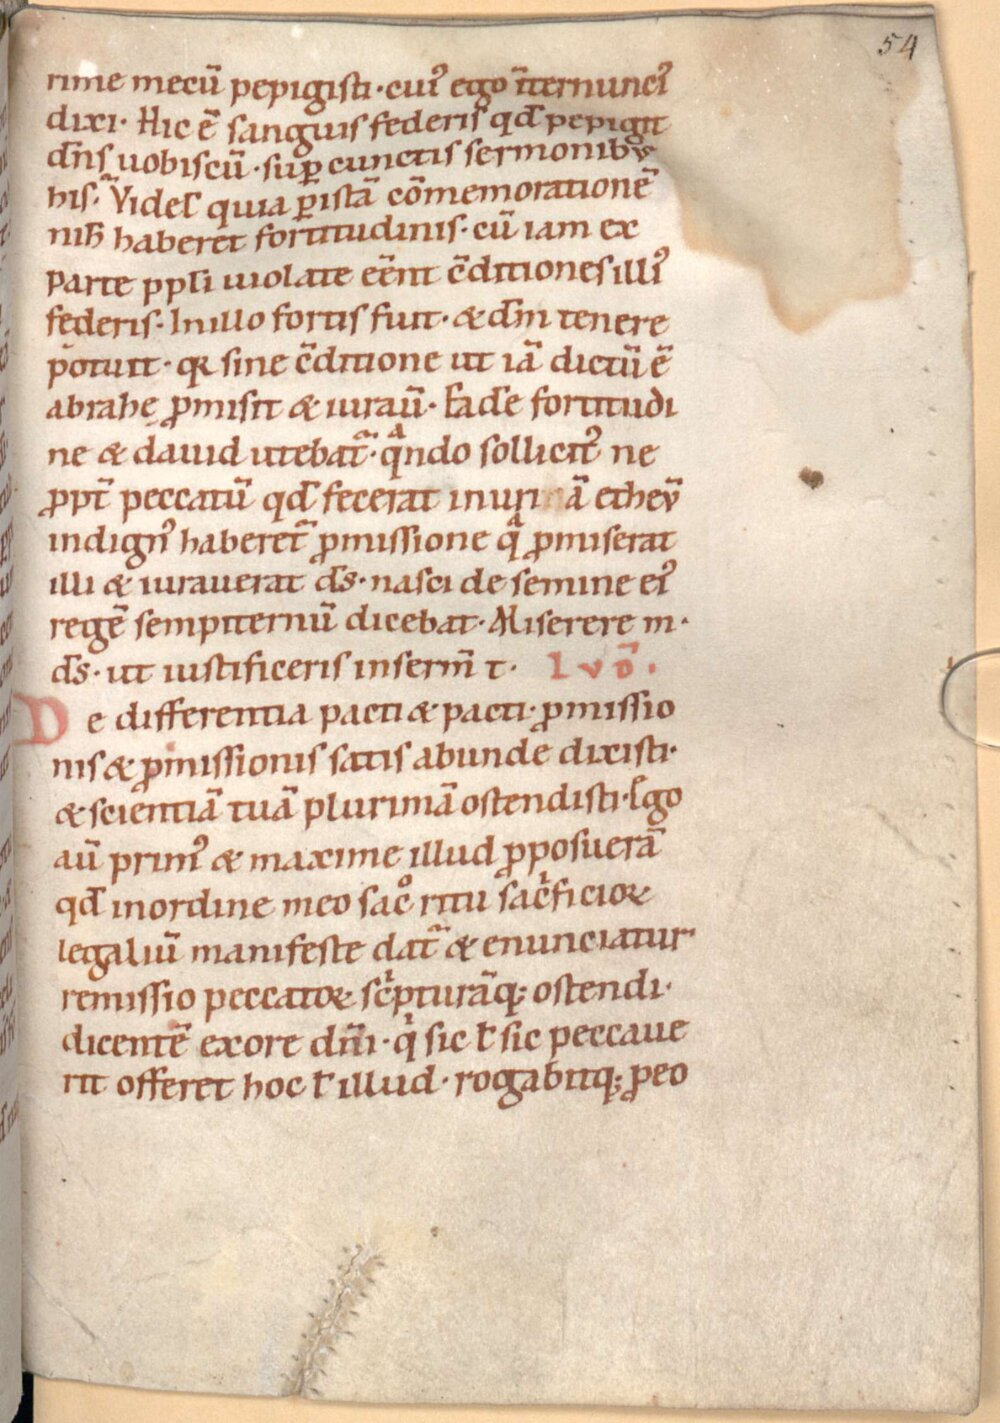 54
rime mecū pepigisti · cuiꝰ ego īternunciꝰ
dixi · Hic ē sanguis federis qđ pepigit
dn̄s uobiscū · suꝑ cunctis sermonibꝰ
his · Videſ quia ꝑ istā cōmemorationē
nih̄ haberet fortitudinis · cū iam ex
parte ppl̄i uiolate eēnt c̄ditiones illiꝰ
federis · In illo fortis fuit · & dm̄ tenere
potuit · qꝛ sine c̄ditione ut iā dictū ē
abrahę ꝓmisit & iurauı̄ · Eadē fortitudi
ne & dauid utebat̄ · qᵃndo sollicitꝰ ne
ꝓpt̄ peccatū qđ fecerat in uriā etheū
indignꝰ haberet̄ ꝓmissione qᵃ ꝓmiserat
illi & iurauerat ds̄ · nasci de semine eiꝰ
regē sempiternū dicebat · Miserere m ·
ds̄ · ut iustificeris in serm̄ t · Ivđ ·
De differentia pacti & pacti · ꝓmissio
nis & ꝓmissionis satis abunde dixisti ·
& scientiā tuā plurimā ostendisti · Ego
aū primꝰ & maxime illud ꝓposuerā
qđ in ordine meo sacᵒ ritu sacⁱficioꝝ
legaliū manifeste dat̄ & enunciatur
remissio peccatoꝝ scⁱpturāq; ostendi ·
dicentē ex ore dn̄i · qⁱ sic ł sic peccaue
rit offeret hoc ł illud · rogabitq; ꝓ eo